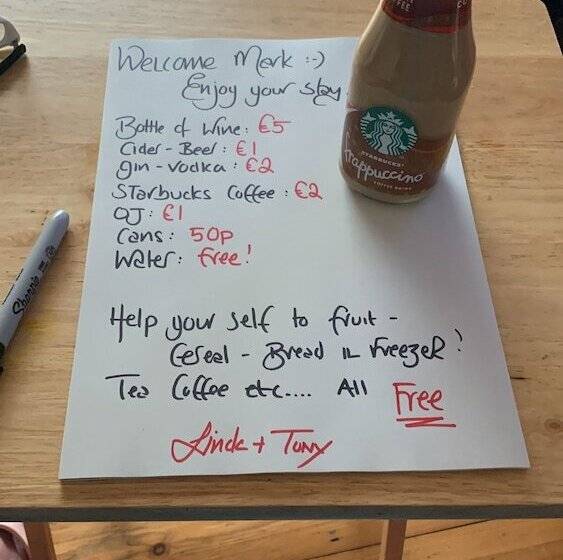 Welcome Mark :-)
Enjoy your stay
Bottle of Wine: €5
Cider - Beer: €1
Gin - Vodka: €2
Starbucks Coffee: €2
OJ: €1
Cans: 50p
Water: Free!
Help your self to fruit -
Cereal - Bread in Freezer!
Tea Coffee etc.... All Free
Linda + Tony
STARBUCKS
frappuccino
COFFEE DRINK
COFFEE
Sharpie